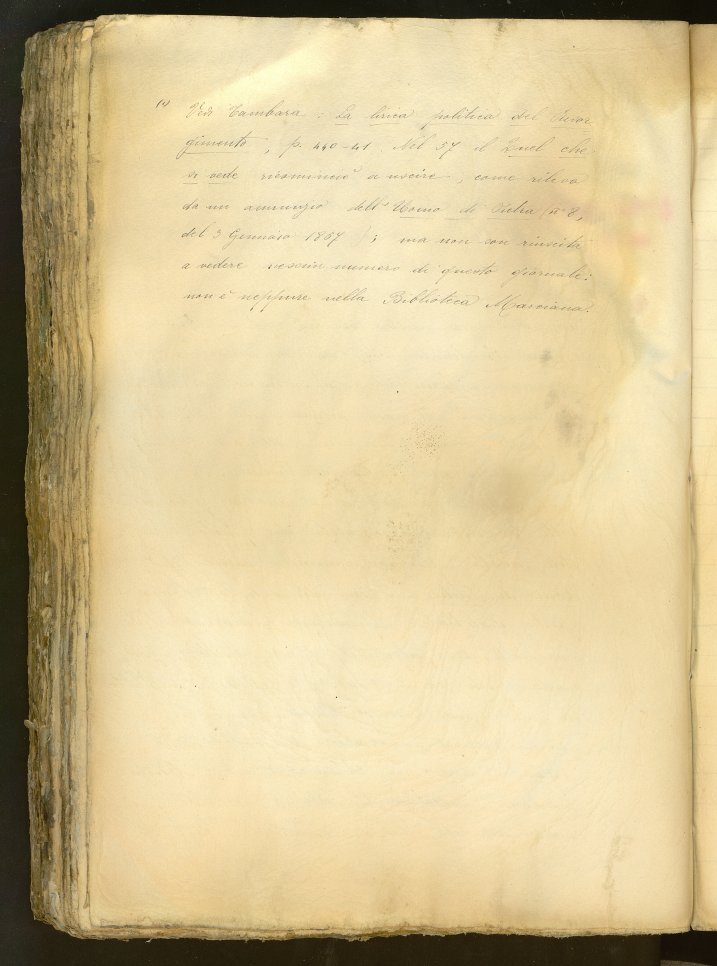 (1) Vedi Tambara : La lirica politica del Risor
gimento, p. 440-41. Nel 57 il Quel che
si vede ricominciò a uscire, come rilevo
da un annunzio dell'Uomo di Pietra (n° 8,
del 3 Gennaio 1857) ; ma non son riuscito
a vedere nessun numero di questo giornale:
non è neppure nella Biblioteca Marciana.